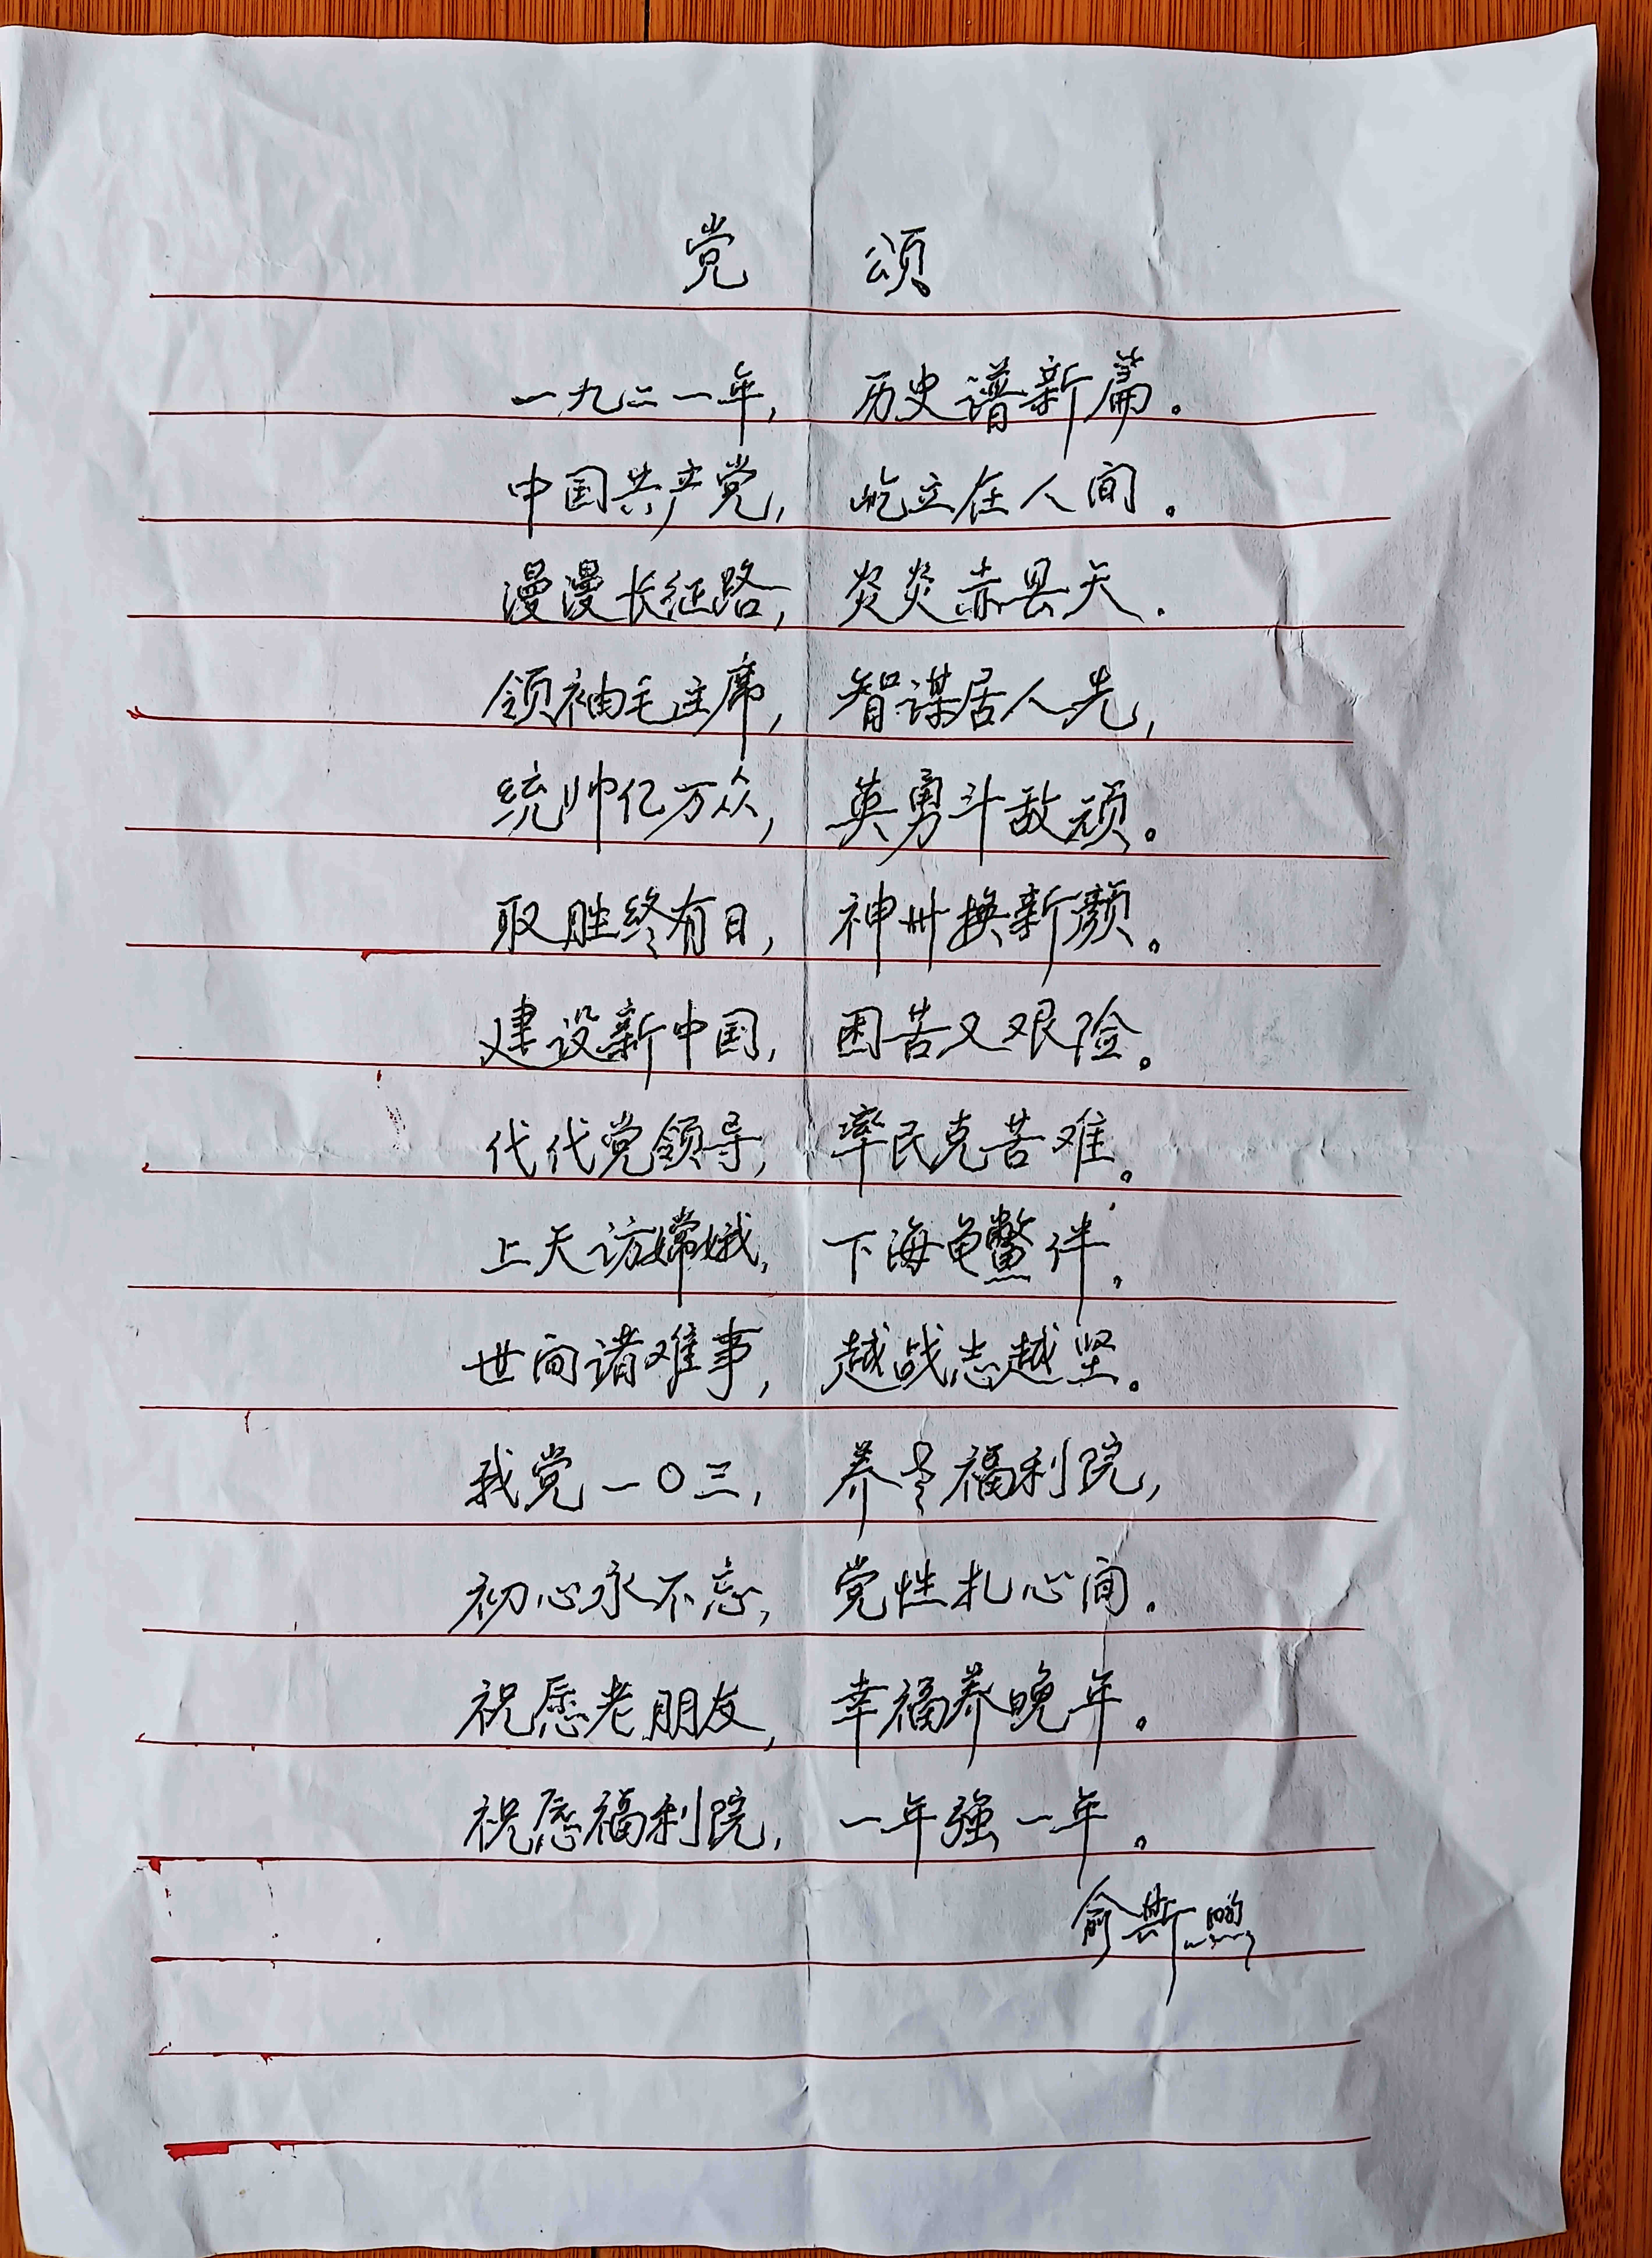 党 颂
一九二一年, 历史谱新篇。
中国共产党, 屹立在人间。
漫漫长征路, 炎炎赤县天.
领袖毛主席, 智谋居人先,
统帅亿万众, 英勇斗敌顽。
取胜终有日, 神州换新颜。
建设新中国, 困苦又艰险。
代代党领导, 率民克苦难。
上天访嫦娥, 下海龟鳖伴。
世间诸难事, 越战志越坚。
我党一〇三, 养老福利院,
初心永不忘, 党性扎心间.
祝愿老朋友, 幸福养晚年。
祝愿福利院, 一年强一年。
俞